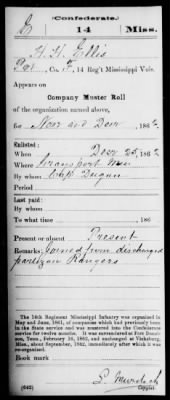 (Confederate.)
E 14 Miss.
H. H. Ellis
Pvt, Co. F, 14 Reg't Mississippi Vols.
Appears on
Company Muster Roll
of the organization named above,
for Nov and Dec, 186
Enlisted:
When Dec 25, 186
Where
By whom Capt Dugan
Period
Last paid:
By whom
To what time , 186 .
Present or absent Present
Remarks: Joined from discharged
partizan Rangers
The 14th Regiment Mississippi Infantry was organized in
May and June, 1861, of companies which had previously been
in the State service and was mustered into the Confederate
service for twelve months. It was surrendered at Fort Donel-
son, Tenn., February 16, 1862, and exchanged at Vicksburg,
Miss., about September, 1862, immediately after which it was
re-organized.
Book mark:
(642)
Copyist.